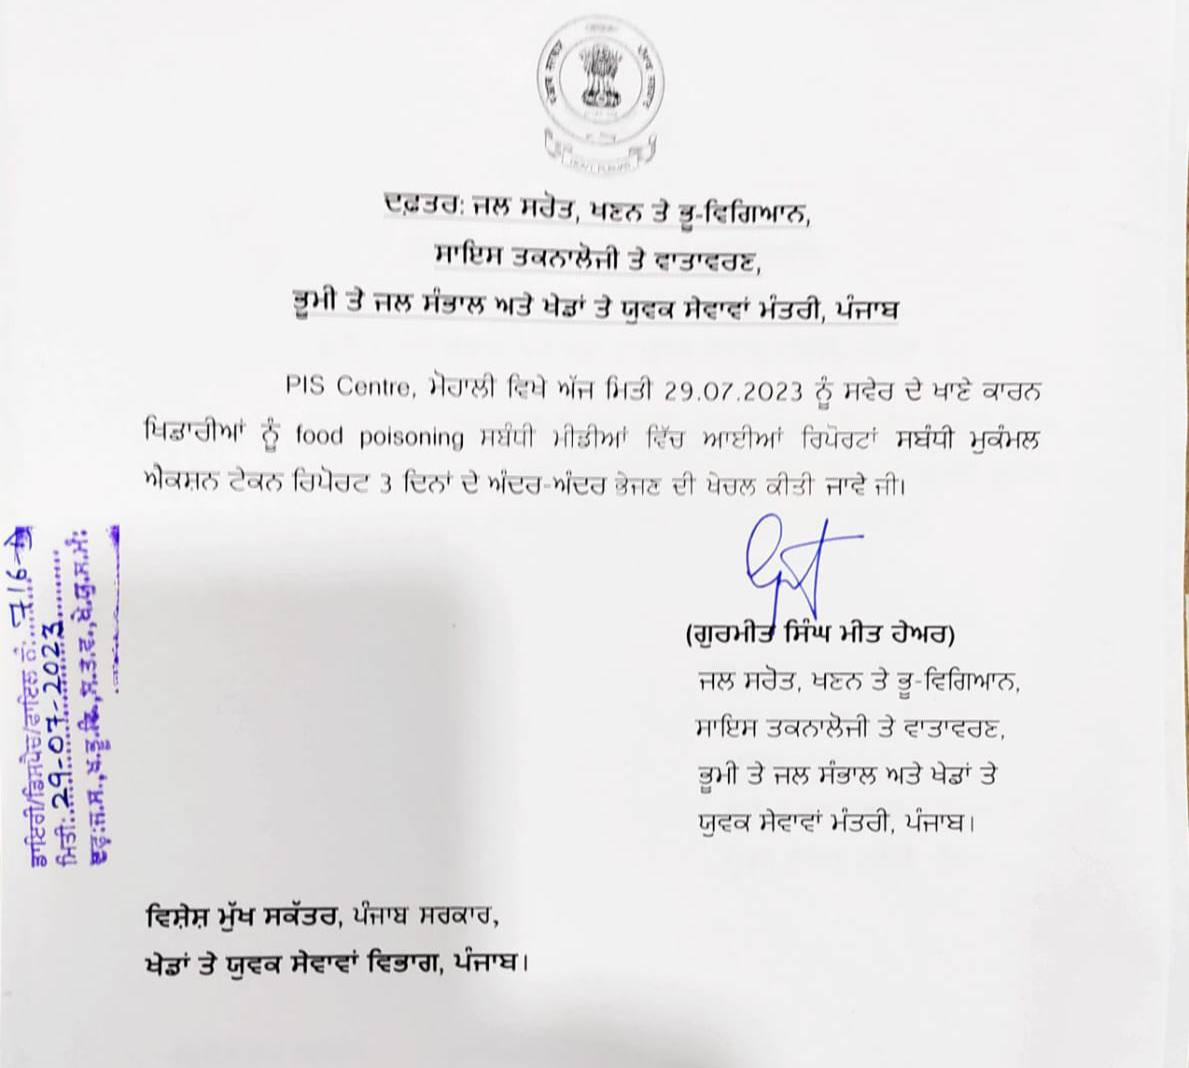 ਦਫ਼ਤਰ: ਜਲ ਸਰੋਤ, ਖਣਨ ਤੇ ਭੂ-ਵਿਗਿਆਨ,
ਸਾਇਸ ਤਕਨਾਲੋਜੀ ਤੇ ਵਾਤਾਵਰਣ,
ਭੂਮੀ ਤੇ ਜਲ ਸੰਭਾਲ ਅਤੇ ਖੇਡਾਂ ਤੇ ਯੁਵਕ ਸੇਵਾਵਾਂ ਮੰਤਰੀ, ਪੰਜਾਬ
PIS Centre, ਮੋਹਾਲੀ ਵਿਖੇ ਅੱਜ ਮਿਤੀ 29.07.2023 ਨੂੰ ਸਵੇਰ ਦੇ ਖਾਣੇ ਕਾਰਨ
ਖਿਡਾਰੀਆਂ ਨੂੰ food poisoning ਸਬੰਧੀ ਮੀਡੀਆਂ ਵਿੱਚ ਆਈਆਂ ਰਿਪੋਰਟਾਂ ਸਬੰਧੀ ਮੁਕੰਮਲ
ਐਕਸ਼ਨ ਟੇਕਨ ਰਿਪੋਰਟ 3 ਦਿਨਾਂ ਦੇ ਅੰਦਰ-ਅੰਦਰ ਭੇਜਣ ਦੀ ਖੇਚਲ ਕੀਤੀ ਜਾਵੇ ਜੀ।
(ਗੁਰਮੀਤ ਸਿੰਘ ਮੀਤ ਹੇਅਰ)
ਜਲ ਸਰੋਤ, ਖਣਨ ਤੇ ਭੂ-ਵਿਗਿਆਨ,
ਸਾਇਸ ਤਕਨਾਲੋਜੀ ਤੇ ਵਾਤਾਵਰਣ,
ਭੂਮੀ ਤੇ ਜਲ ਸੰਭਾਲ ਅਤੇ ਖੇਡਾਂ ਤੇ
ਯੁਵਕ ਸੇਵਾਵਾਂ ਮੰਤਰੀ, ਪੰਜਾਬ।
ਡਾਇਰੀ/ਡਿਸਪੈਚ/ਫਾਇਲ ਨੰ: 716-
ਮਿਤੀ: 29-07-2023
ਵਿਸ਼ੇਸ਼ ਮੁੱਖ ਸਕੱਤਰ, ਪੰਜਾਬ ਸਰਕਾਰ,
ਖੇਡਾਂ ਤੇ ਯੁਵਕ ਸੇਵਾਵਾਂ ਵਿਭਾਗ, ਪੰਜਾਬ।